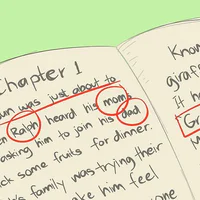 Chapter 1
un was just about to
en Ralph heard his mom
asking him to join his dad
ck some fruits for dinner.
's family was trying their
ake him feel
one
Know
giraf
It h
Gr